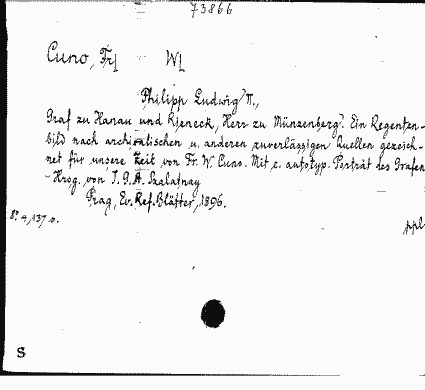 73866
Cuno, Fr[ W[
Philipp Ludwig II.,
Graf zu Hanau und Rieneck, Herr zu Münzenberg. Ein Regenten-
bild nach archivalischen u. anderen zuverlässigen Quellen gezeich-
net für unsere Zeit von Fr. W. Cuno. Mit e. autotyp. Porträt des Grafen
- Hrsg. von J. G. A. Szalatnay
Prag, Ev. Ref. Blätter, 1896.
8°. 4, 137 S.
ppl
S